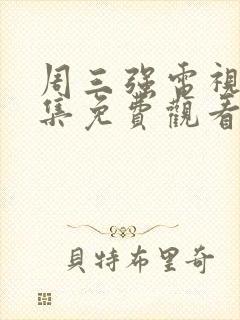 周三强電視
集免費觀看
貝特布里奇